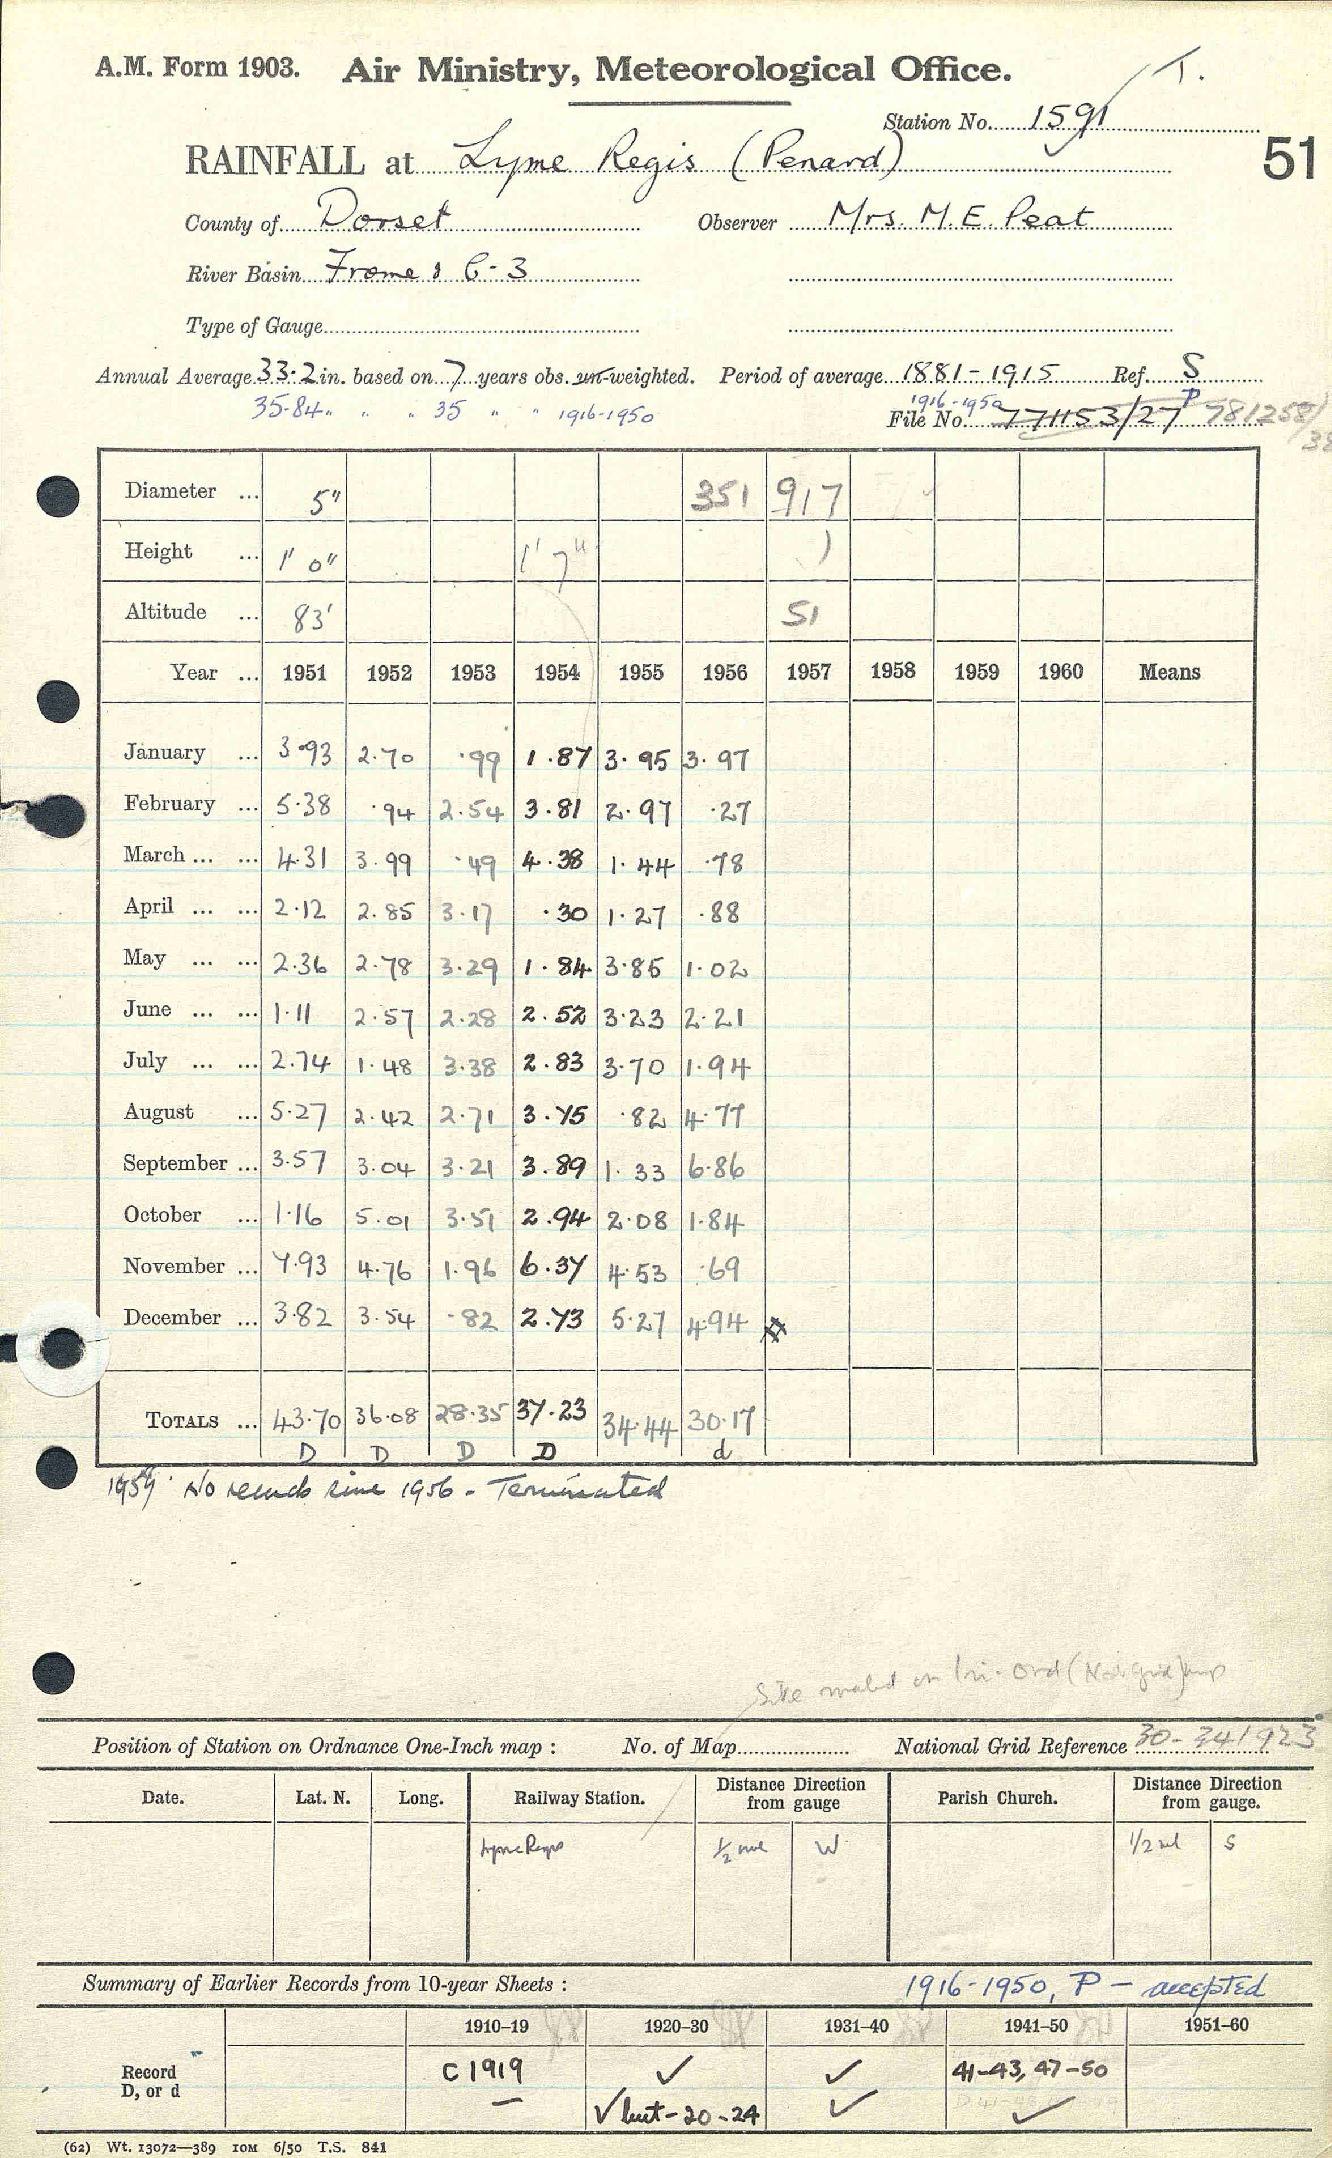 A.M. Form 1903. Air Ministry, Meteorological Office. T.
Station No. 1591
RAINFALL at Lyme Regis (Penard) 51
County of Dorset Observer Mrs. M.E. Peat
River Basin Frome & C-3
Type of Gauge
Annual Average 33.2 in. based on 7 years obs. un-weighted. Period of average 1881-1915 Ref. S
35.84 " " " 35 " " 1916-1950 1916-1950 P
File No. 771153/27 781258/38
Diameter ... 5" 351 917
Height ... 1' 0" 1' 7" )
Altitude ... 83' 51
Year ... 1951 1952 1953 1954 1955 1956 1957 1958 1959 1960 Means
January ... 3.93 2.70 .99 1.87 3.95 3.97
February ... 5.38 .94 2.54 3.81 2.97 .27
March ... ... 4.31 3.99 .49 4.38 1.44 .78
April ... ... 2.12 2.85 3.17 .30 1.27 .88
May ... ... 2.36 2.78 3.29 1.84 3.85 1.02
June ... ... 1.11 2.57 2.28 2.52 3.23 2.21
July ... ... 2.74 1.48 3.38 2.83 3.70 1.94
August ... 5.27 2.42 2.71 3.75 .82 4.77
September ... 3.57 3.04 3.21 3.89 1.33 6.86
October ... 1.16 5.01 3.51 2.94 2.08 1.84
November ... 7.93 4.76 1.96 6.37 4.53 .69
December ... 3.82 3.54 .82 2.73 5.27 4.94
TOTALS ... 43.70 36.08 28.35 37.23 34.44 30.17
D D D D d
1959 No records since 1956 - Terminated
Site marked on Ord (Nat. Grid) map
Position of Station on Ordnance One-Inch map : No. of Map National Grid Reference 30-341923
Date. Lat. N. Long. Railway Station. Distance from gauge Direction Parish Church. Distance Direction from gauge.
Lyme Regis 1/2 mile W 1/2 ml S
Summary of Earlier Records from 10-year Sheets : 1916-1950, P - accepted
1910-19 1920-30 1931-40 1941-50 1951-60
Record C 1919 ✓ ✓ 41-43, 47-50
D, or d — ✓ but - 20-24 ✓ ✓
(62) Wt. 13072—389 10M 6/50 T.S. 841